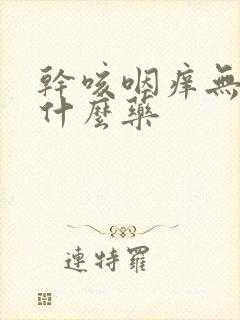 幹咳咽痒無
什麼藥
連特羅